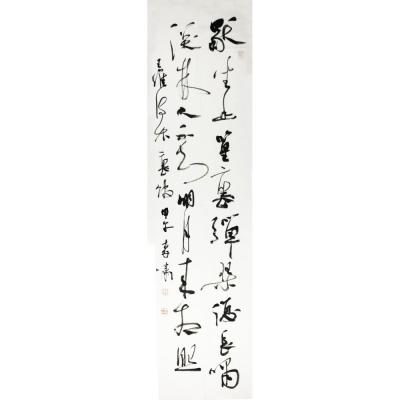 獨坐幽篁裏彈琴復長嘯
深林人不知明月来相照
王維詩竹裏館甲午